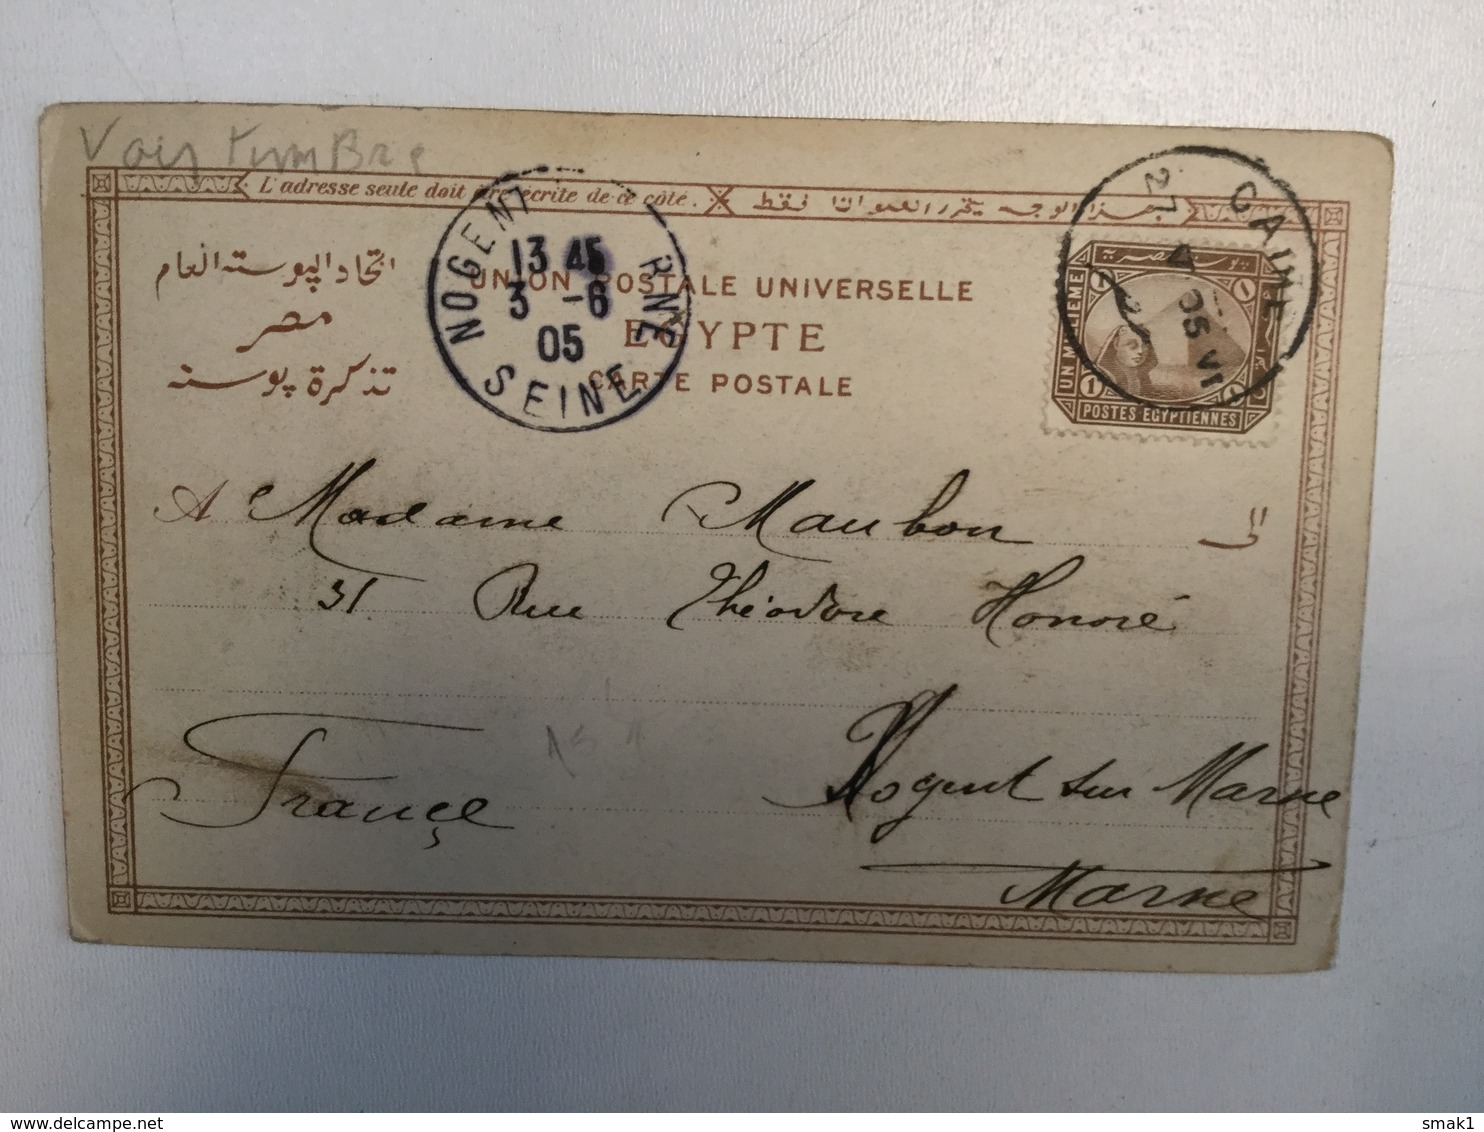 Voir timbre
L'adresse seule doit être écrite de ce côté. بهذا الوجه يتحرر العنوان فقط
اتحاد البوسته العام
UNION POSTALE UNIVERSELLE
مصر
EGYPTE
تذكرة بوسته
CARTE POSTALE
NOGENT
13 45
3 -6
05
SEINE
CAIRE
27 V 05 VI
UN MILLIEME
1
1
POSTES EGYPTIENNES
A Madame Maubon
31 Rue Théodore Honoré
Nogent sur Marne
Marne
France
smak1
delcampe.net